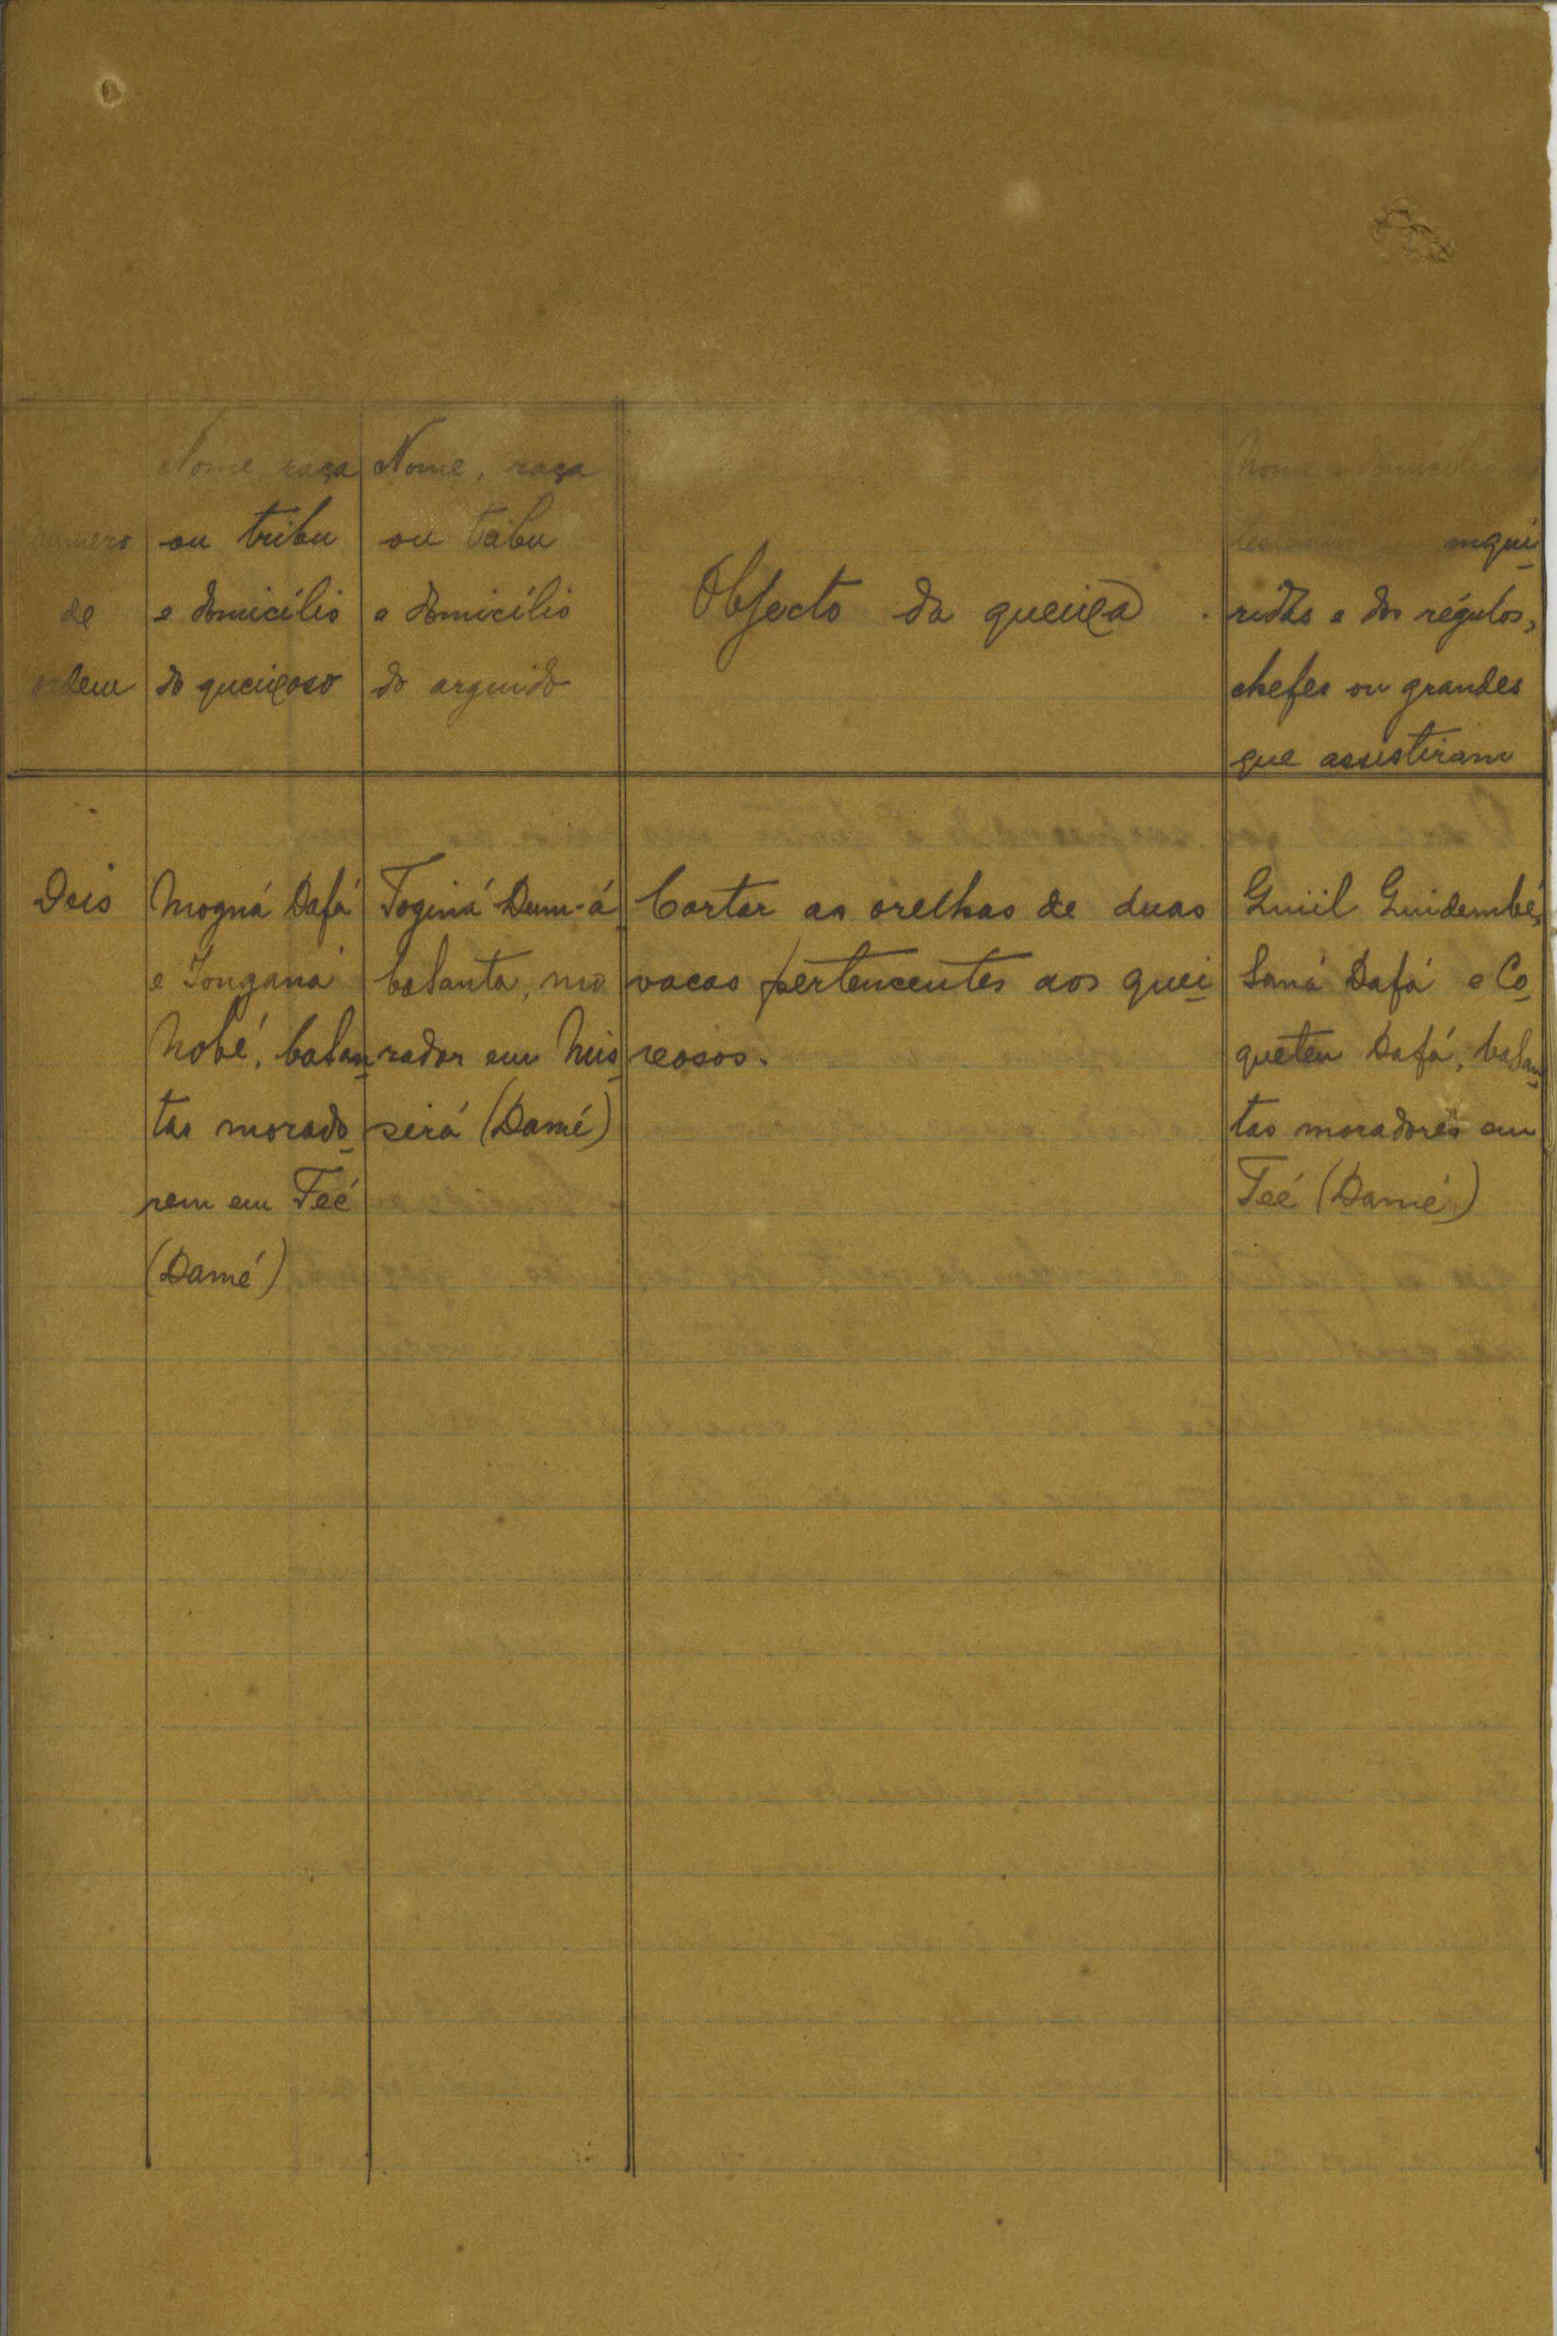 Nome, raça
ou tribu
e domicílio
do queixoso
Nome, raça
ou tribu
e domicílio
do arguido
Objecto da queixa
inqui
ridas e dos régulos,
chefes ou grandes
que assistiram
numero
de
ordem
Dois
Mogná Dafá
e Tonganá
Nobé, balan
tas morado
rem em Teé
(Damé)
Toginá Dum-á
balanta, mo
rador em Mis
será (Damé)
Cortar as orelhas de duas
vacas pertencentes aos quei
xosos.
Guiil Guidembé,
Saná Dafá e Co
queten Dafá, balan
tas moradores em
Teé (Damé)